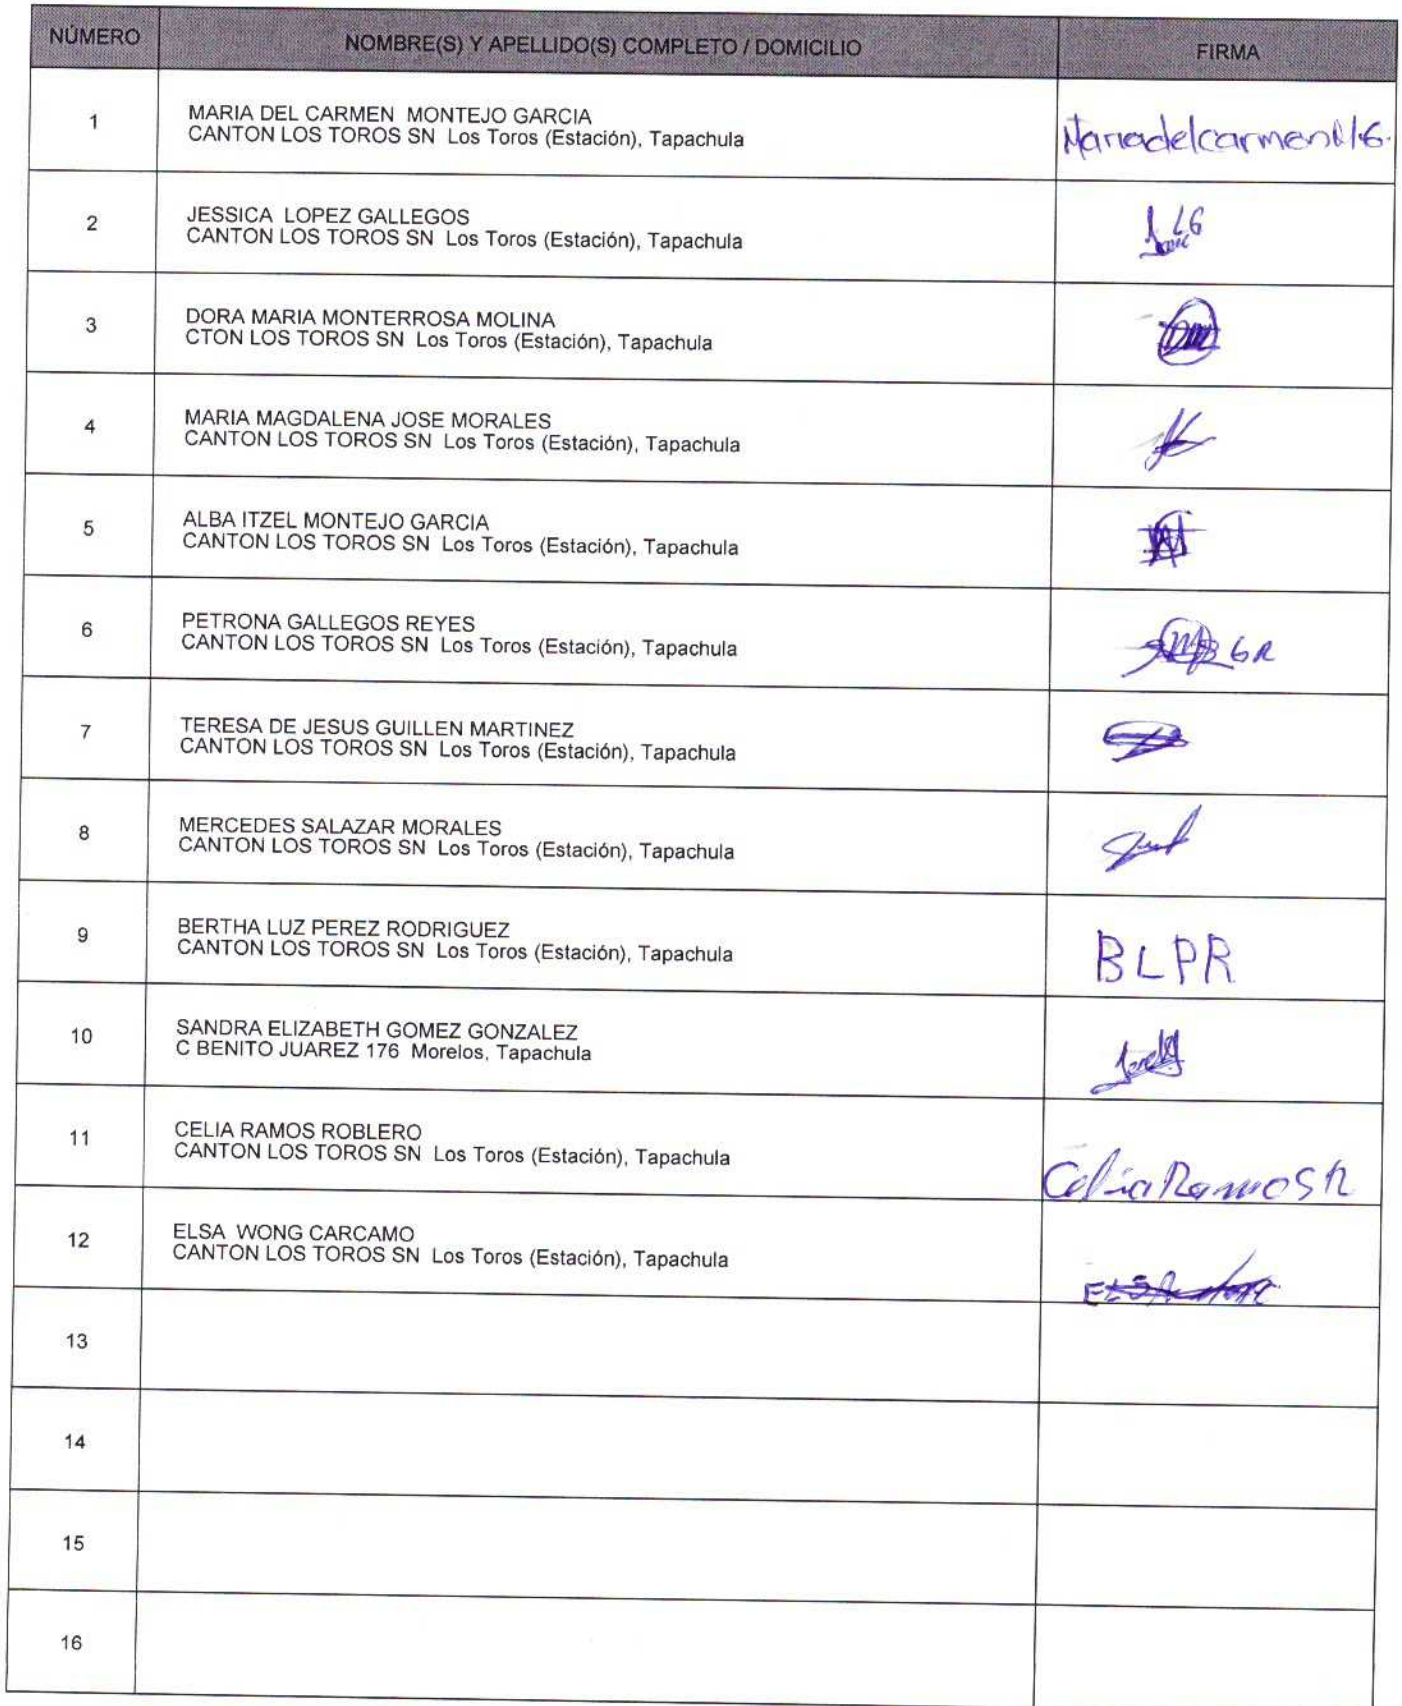 NÚMERO NOMBRE(S) Y APELLIDO(S) COMPLETO / DOMICILIO FIRMA
1 MARIA DEL CARMEN MONTEJO GARCIA
CANTON LOS TOROS SN Los Toros (Estación), Tapachula
Mariadelcarmen M.G.
2 JESSICA LOPEZ GALLEGOS
CANTON LOS TOROS SN Los Toros (Estación), Tapachula
LG
3 DORA MARIA MONTERROSA MOLINA
CTON LOS TOROS SN Los Toros (Estación), Tapachula
4 MARIA MAGDALENA JOSE MORALES
CANTON LOS TOROS SN Los Toros (Estación), Tapachula
5 ALBA ITZEL MONTEJO GARCIA
CANTON LOS TOROS SN Los Toros (Estación), Tapachula
6 PETRONA GALLEGOS REYES
CANTON LOS TOROS SN Los Toros (Estación), Tapachula
GR
7 TERESA DE JESUS GUILLEN MARTINEZ
CANTON LOS TOROS SN Los Toros (Estación), Tapachula
8 MERCEDES SALAZAR MORALES
CANTON LOS TOROS SN Los Toros (Estación), Tapachula
9 BERTHA LUZ PEREZ RODRIGUEZ
CANTON LOS TOROS SN Los Toros (Estación), Tapachula
BLPR
10 SANDRA ELIZABETH GOMEZ GONZALEZ
C BENITO JUAREZ 176 Morelos, Tapachula
11 CELIA RAMOS ROBLERO
CANTON LOS TOROS SN Los Toros (Estación), Tapachula
Celia Ramos R
12 ELSA WONG CARCAMO
CANTON LOS TOROS SN Los Toros (Estación), Tapachula
ELSA
13
14
15
16